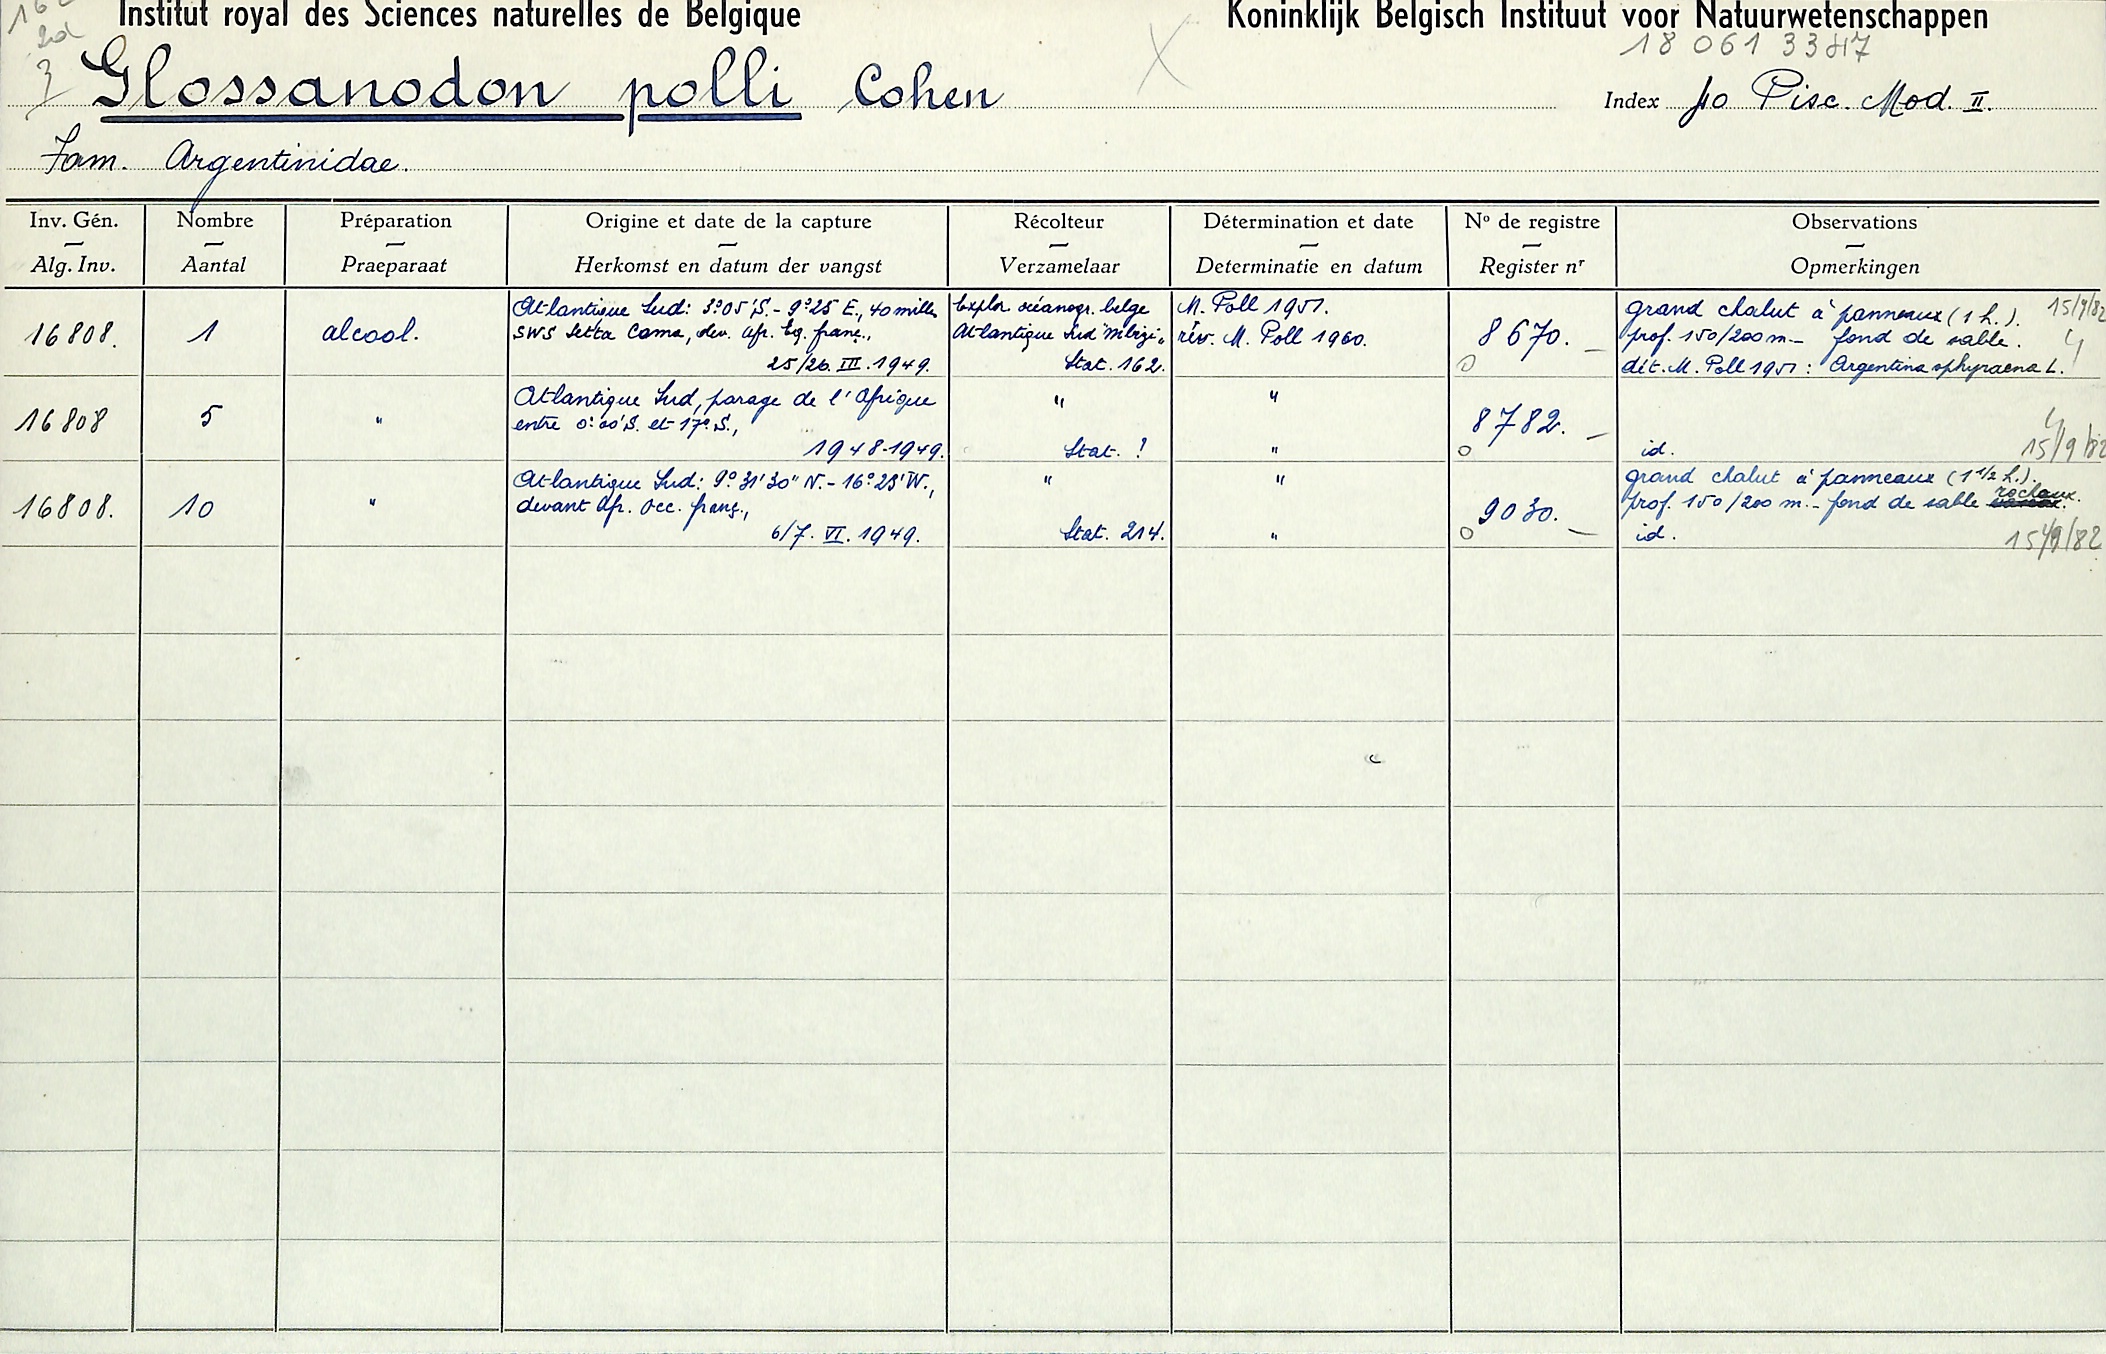 Institut royal des Sciences naturelles de Belgique
Koninklijk Belgisch Instituut voor Natuurwetenschappen
18 061 3347
Glossanodon polli Cohen
Index Pisc. Mod. II.
Fam. Argentinidae.
Inv. Gén. Nombre Préparation Origine et date de la capture Récolteur Détermination et date Nº de registre Observations
Alg. Inv. Aantal Praeparaat Herkomst en datum der vangst Verzamelaar Determinatie en datum Register nr Opmerkingen
16808. 1 alcool.
Atlantique Sud: 3°05'S. - 9°25 E., 40 milles
SWS Setta Cama, dev. Afr. Eq. franç.,
25/26. III. 1949.
Explor. océanogr. belge
Atlantique Sud "Mbizi"
Stat. 162.
M. Poll 1951.
rév. M. Poll 1960.
8670. –
grand chalut à panneaux (1 h.). 15/9/82
prof. 150/200 m – fond de sable.
dét. M. Poll 1951: Argentina sphyraena L.
16808 5 "
Atlantique Sud, parage de l'Afrique
entre 0°00'S. et 17° S.,
1948-1949.
"
Stat. ?
"
"
8782. –
id. 15/9/82
16808. 10 "
Atlantique Sud: 9°31'30" N. - 16°23'W.,
devant Afr. Occ. franç.,
6/7. VI. 1949.
"
Stat. 214.
"
"
9030. –
grand chalut à panneaux (1 1/2 h.).
prof. 150/200 m. – fond de sable rocheux.
id. 15/9/82